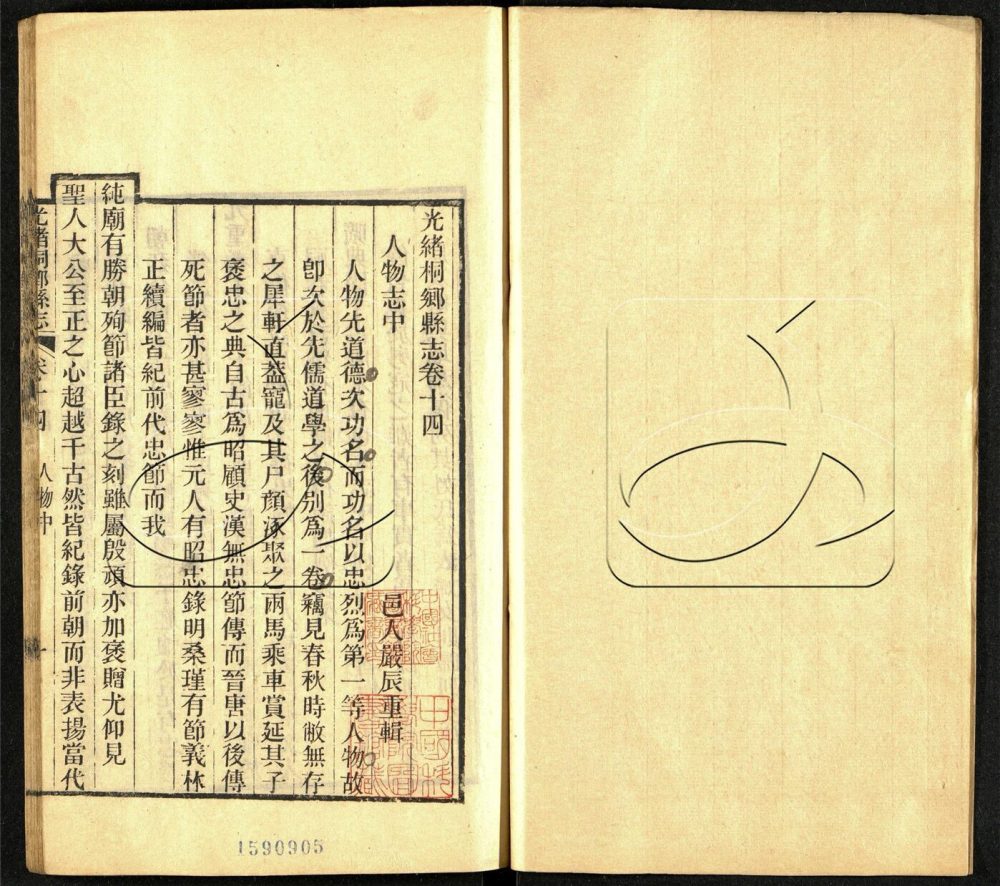 光緒桐鄉縣志卷十四
人物志中
邑人嚴辰重輯
人物先道德次功名而功名以忠烈爲第一等人物故
卽次於先儒道學之後别爲一卷竊見春秋時敝無存
之犀軒直葢寵及其尸顔涿聚之兩馬乘車賞延其子
褒忠之典自古爲昭顧史漢無忠節傳而晉唐以後傳
死節者亦甚寥寥惟元人有昭忠錄明桑瑾有節義林
正續編皆紀前代忠節而我
純廟有勝朝殉節諸臣錄之刻雖屬殷頑亦加褒贈尤仰見
聖人大公至正之心超越千古然皆紀錄前朝而非表揚當代
光緒桐鄉縣志
卷十四
人物中
一
1590905